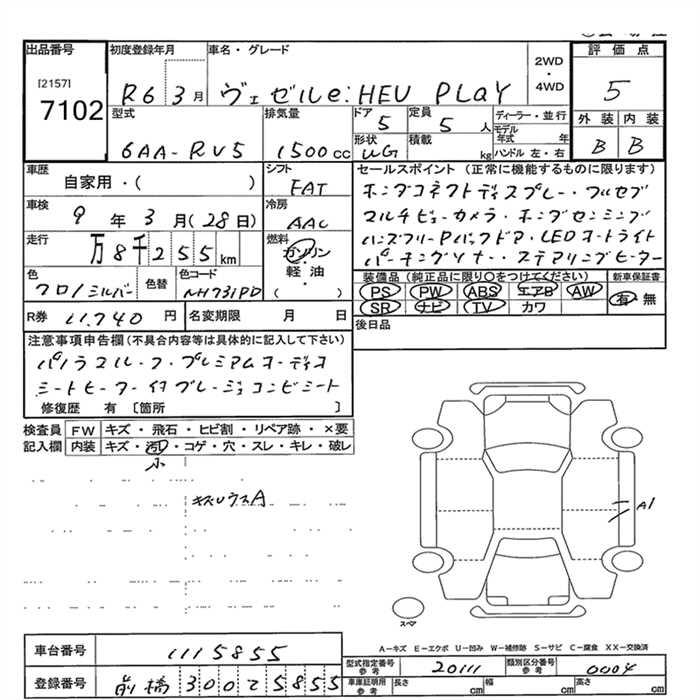 出品番号 初度登録年月 車名・グレード 2WD・4WD 評価点
[2157]
7102 R6 3月 ヴェゼルe:HEV PLaY 5
型式 排気量 ドア 5 定員 5人 ディーラー・並行 外装 内装
6AA-RV5 1500cc 形状 UG 積載 kg モデル年式 年 ハンドル 左・右 B B
車歴 自家用・( ) シフト FAT セールスポイント (正常に機能するものに限ります)
車検 9年 3月(28日) 冷房 AAC ホンダコネクトディスプレー・フルセグ
マルチビューカメラ・ホンダセンシング
走行 万8千255km 燃料 ガソリン・軽油・( ) ハンズフリーPバックドア・LEDオートライト
パーキングソナー・ステアリングヒーター
色 クロノシルバー 色替 色コード NH731PD 装備品 (純正品に限り○をつけてください) 新車保証書
PS PW ABS エアB AW 有・無
SR ナビ TV カワ
R券 11,740円 名変期限 月 日 後日品
注意事項申告欄(不具合内容等は具体的に記入して下さい)
パノラマルーフ・プレミアムオーディオ
シートヒーター
コンビシート
修復歴 有 [箇所 ]
検査員 FW キズ・飛石・ヒビ割・リペア跡・×要
記入欄 内装 キズ・汚れ・コゲ・穴・スレ・キレ・破レ
小
キズウスA
A1
スペア
A-キズ E-エクボ U-凹み W-補修跡 S-サビ C-腐食 XX-交換済
車台番号 1115855 型式指定番号 参考 20111 類別区分番号 参考 0004
登録番号 前橋 300て5855 車庫証明用 参考 長さ cm 幅 cm 高さ cm